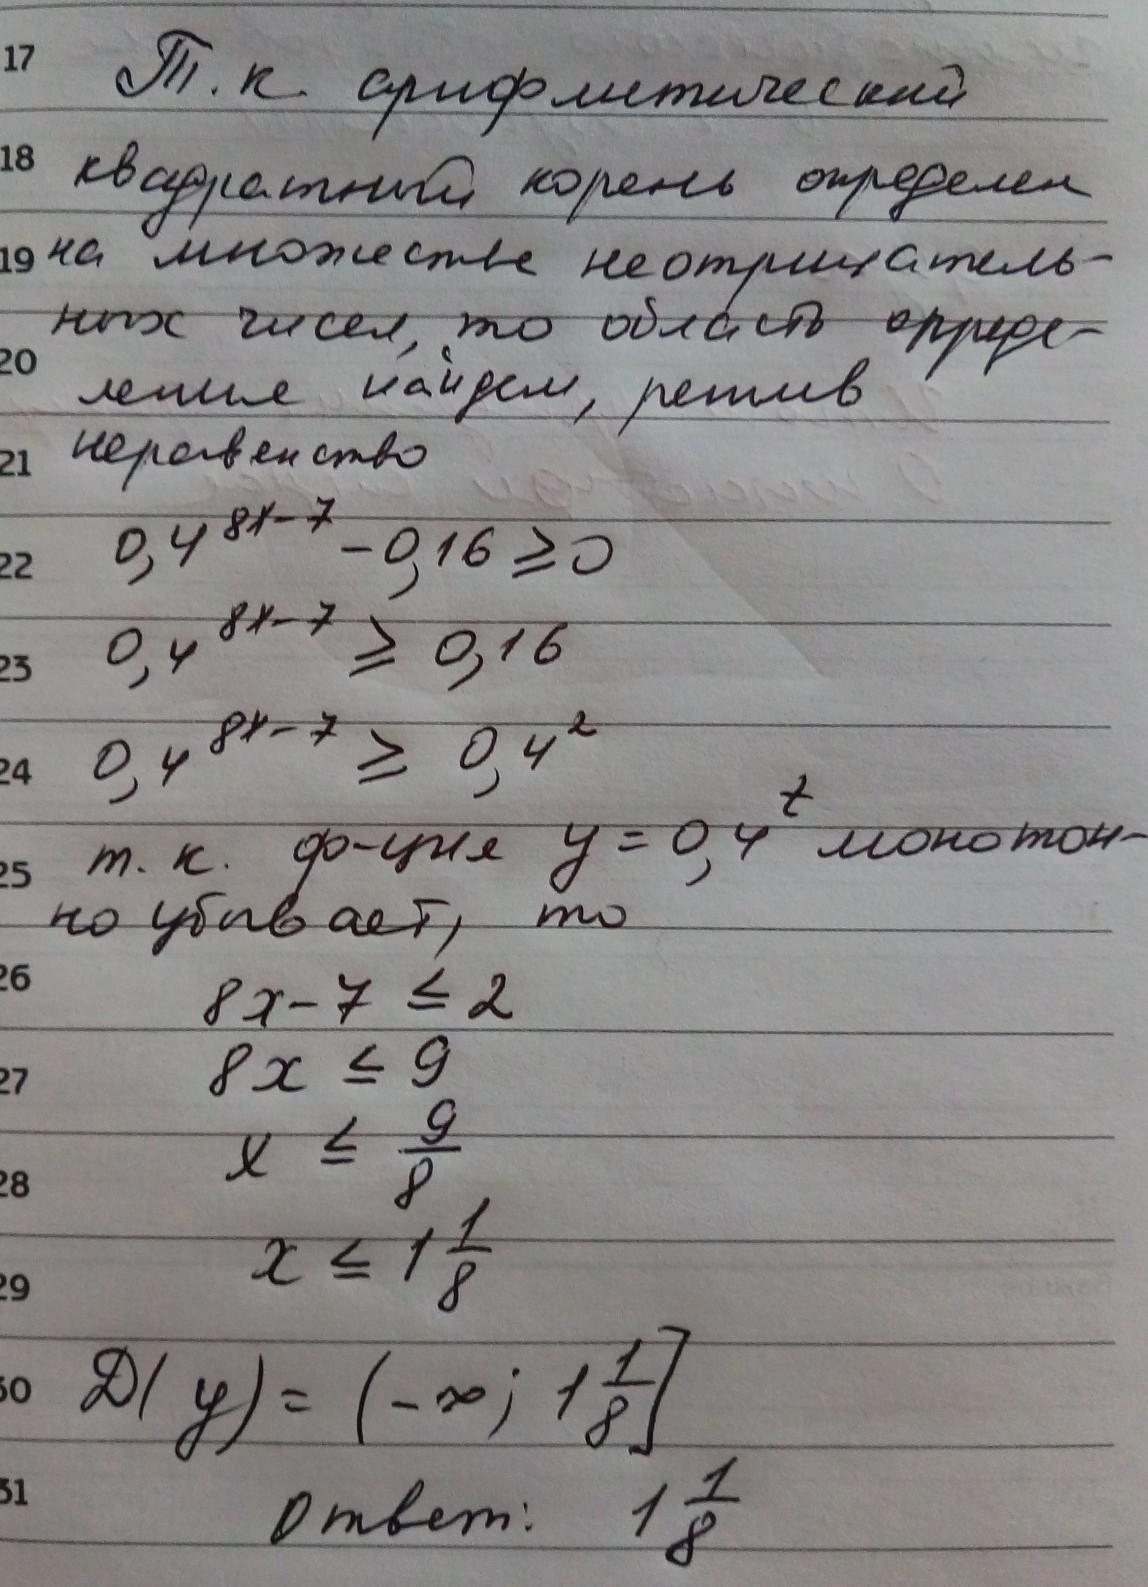 17 Т.к. арифметический
18 квадратный корень определен
19 на множестве неотрицатель-
ных чисел, то область опреде-
20
ления найдем, решив
21 неравенство
22 0,4^{8x-7} - 0,16 ≥ 0
23 0,4^{8x-7} ≥ 0,16
24 0,4^{8x-7} ≥ 0,4^2
25 т.к. ф-ция y = 0,4^t монотон-
но убывает, то
26 8x - 7 ≤ 2
27 8x ≤ 9
28 x ≤ 9/8
29 x ≤ 1 1/8
30 D(y) = (-∞; 1 1/8]
31 Ответ: 1 1/8